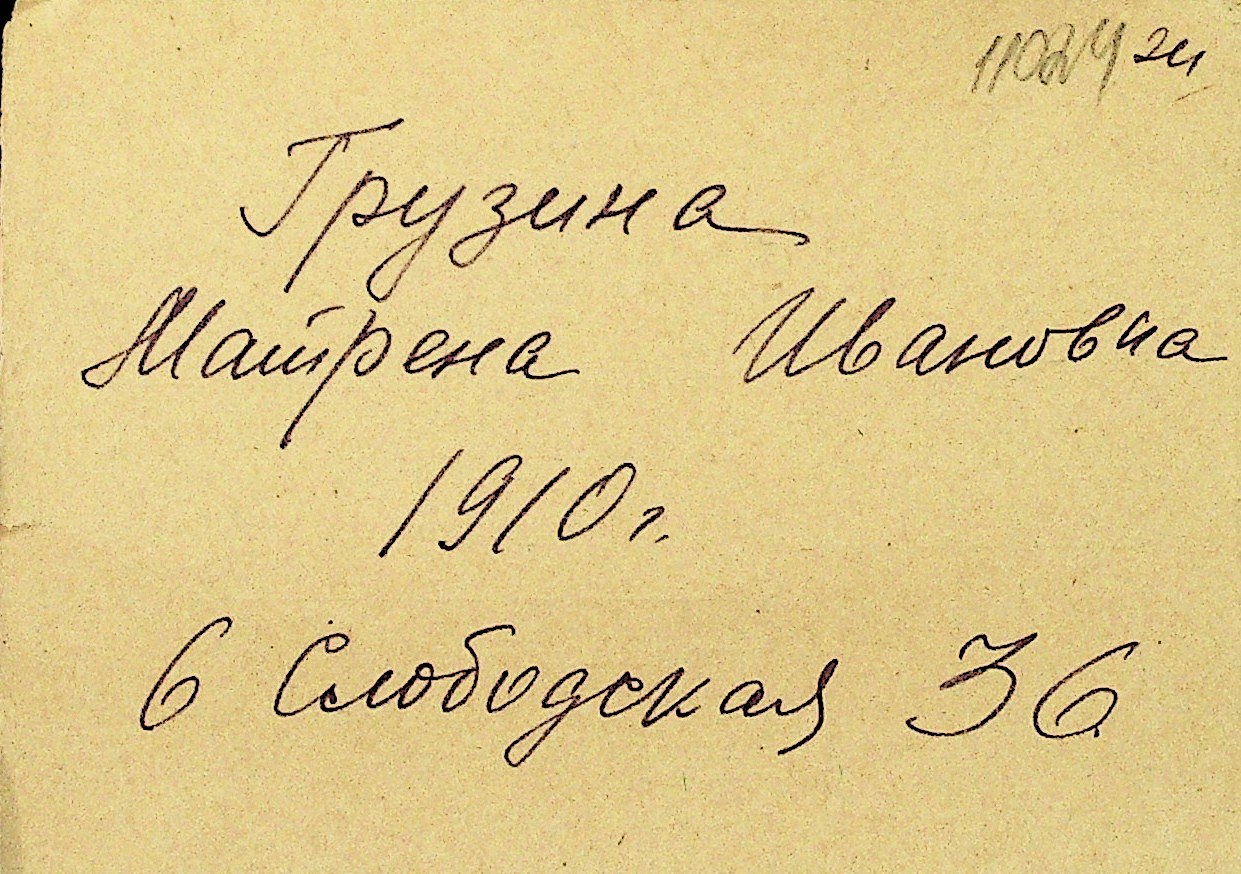 11024
Грузина
Матрена Ивановна
1910 г.
6 Слободская 36